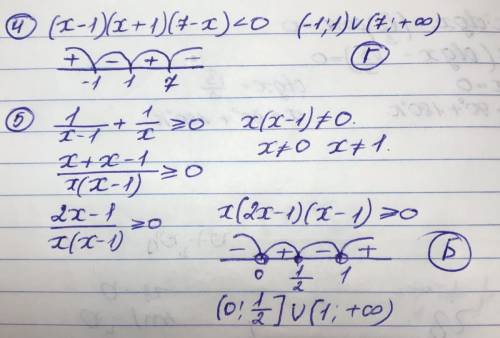 ④ (x-1)(x+1)(7-x)<0 (-1;1)∪(7;+∞)
+ - + -
-1 1 7 Г
⑤ 1/(x-1) + 1/x ≥0 x(x-1)≠0.
x≠0 x≠1.
(x+x-1)/(x(x-1)) ≥0
(2x-1)/(x(x-1)) ≥0 x(2x-1)(x-1)≥0
- + - +
0 1/2 1 Б
(0;1/2]∪(1;+∞)